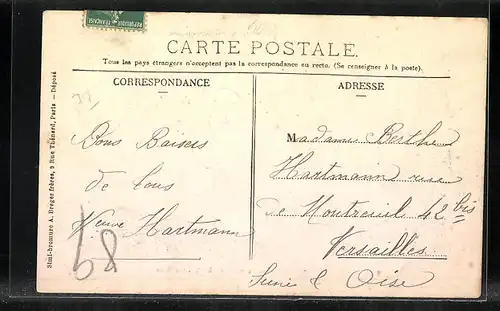 CARTE POSTALE.
Tous les pays étrangers n'acceptent pas la correspondance au recto. (Se renseigner à la poste).
CORRESPONDANCE
ADRESSE
Bons Baisers
de tous
Veuve Hartmann
58
Madame Berthe
Hartmann rue
de Montreuil 42 bis
Versailles
Seine & Oise
Simi-bromure A. Breger frères, 9 Rue Thénard, Paris — Déposé